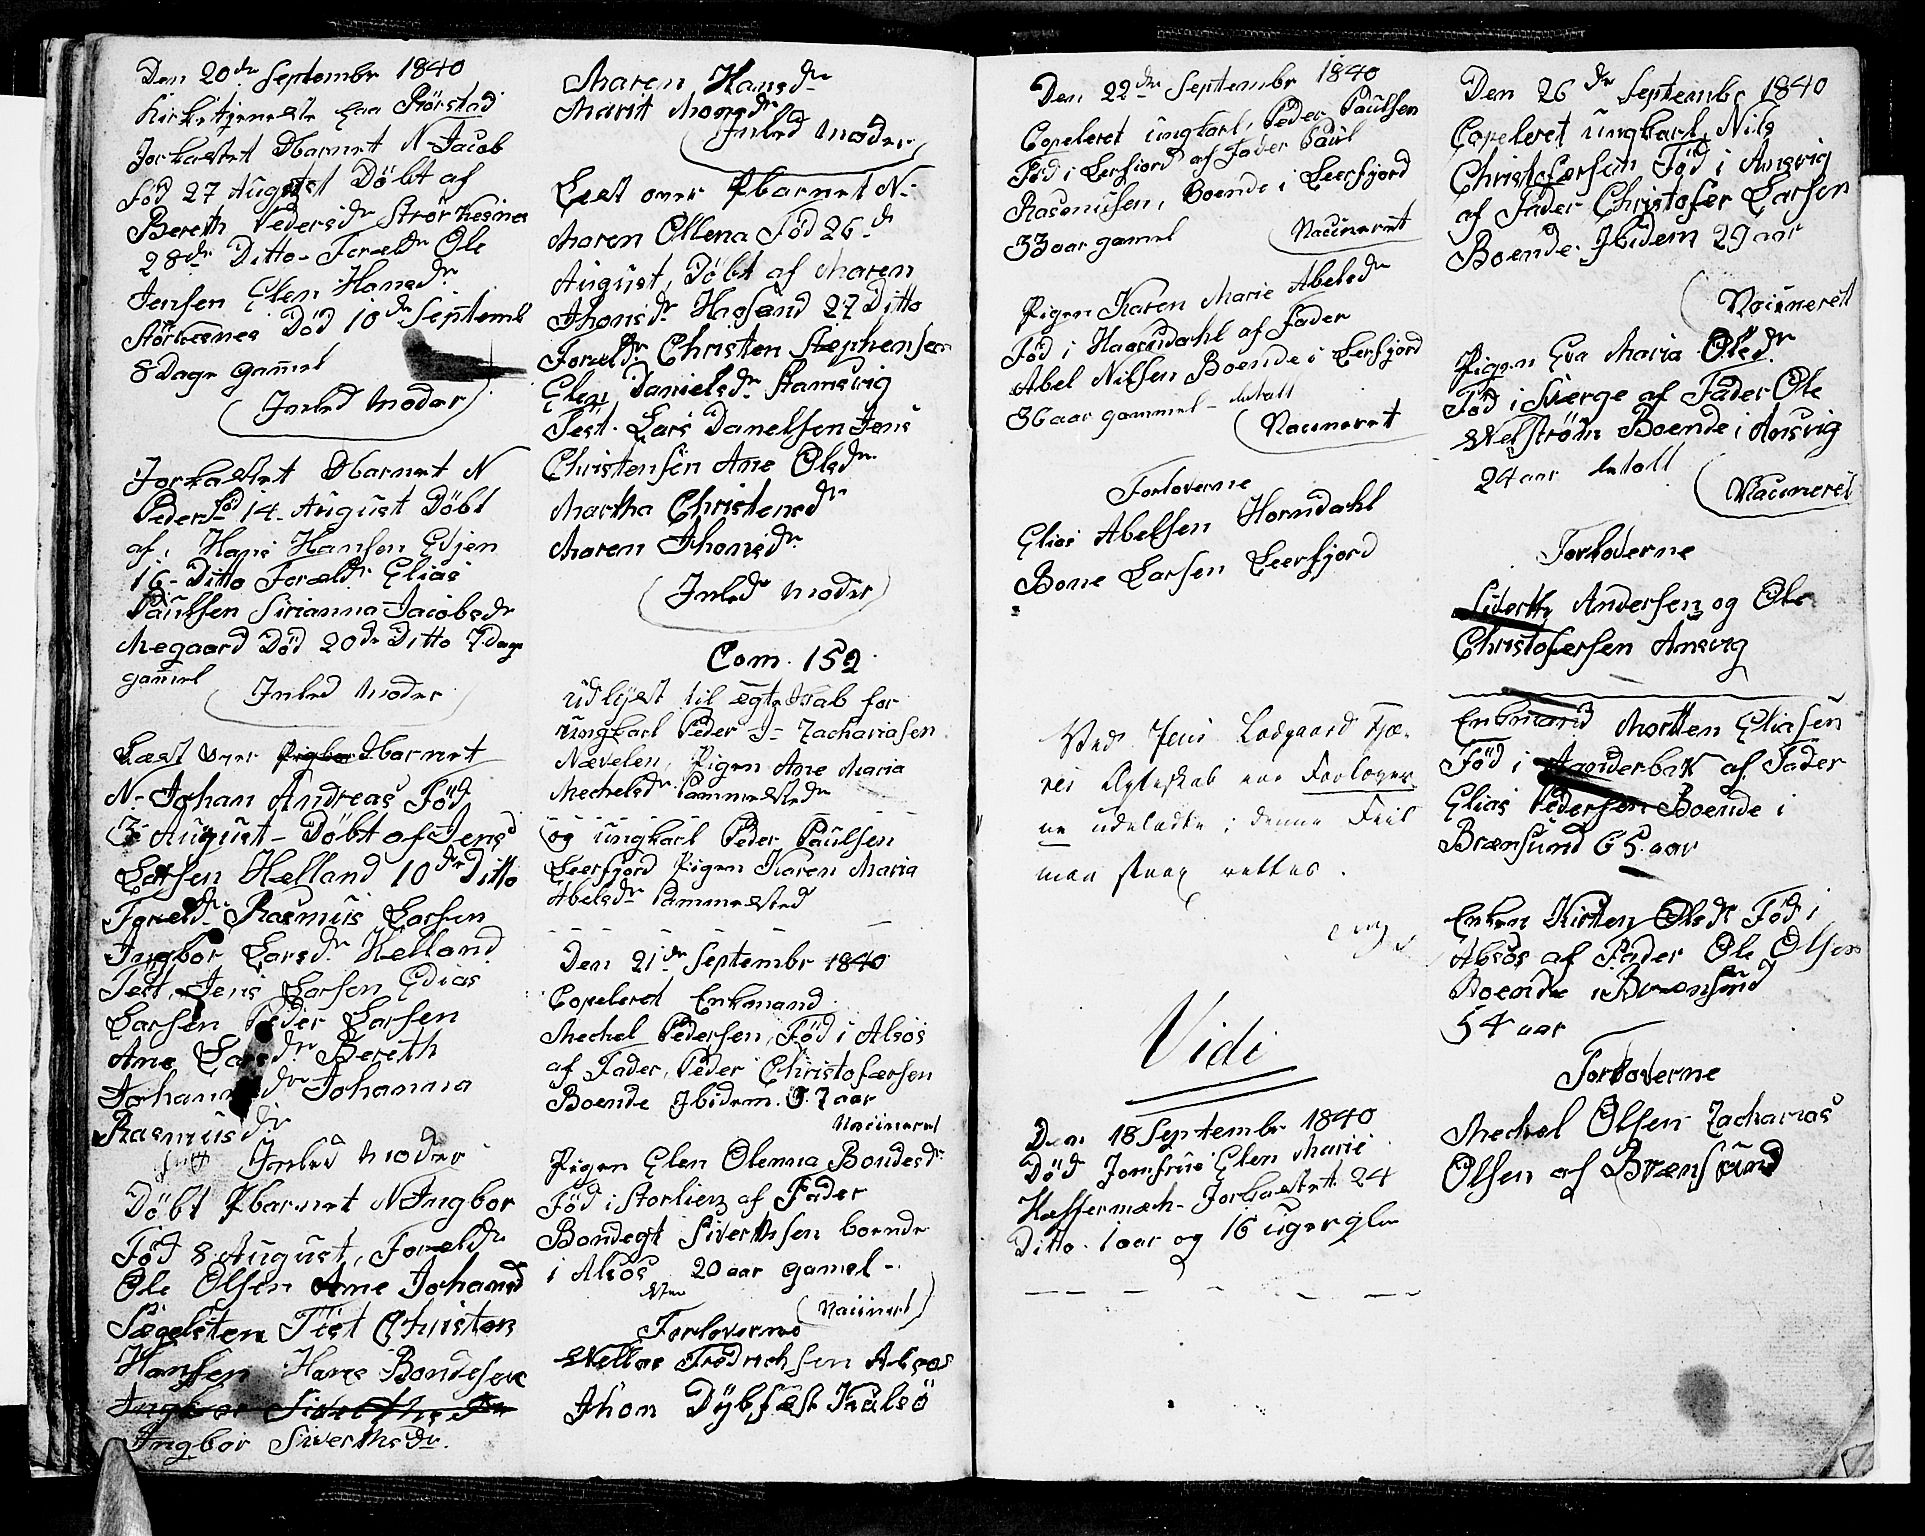 Den 20de Septembr 1840
Kirketjeneste paa Rörstad
Jorkastet Dbarnet N Jacob
Föd 27 August Döbt af
Bereth Pedersdr Störkesnes
28de Ditto Foreldr Ole
Jensen Elen Hansdr
Störkesnes Död 10de Septemb
8 Dage gamel
Inled Moder
Jorkastet Dbarnet N
Peder Föd 14 August Döbt
af Hans Hansen Evjen
16 Ditto Foreldr Elias
Paulsen Sirianna Jacobsdr
Megaard Död 20de Ditto 7 Dage
gamel
Inled Moder
Læst over Dbarnet
N. Johan Andreas Föd
3 August Döbt af Jens
Larsen Helland 10de Ditto
Foreldr Rasmus Larsen
Ingbor Larsdr Helland
Test. Jens Larsen Edias
Larsen Peder Larsen
Ane Larsdr Bereth
Johannsdr Johanna
Rasmusdr
Inled Moder
Döbt Pbarnet N Ingbor
Föd 8 August, Foreldr
Ole Olsen Ane Johansd
Sægelsten Test Christen
Hansen Hans Bondesen
Ingbor Siverthsdr
Ingbor Siverthsdr.
Maren Hansdr
Marit Monsdr
Inled Moder
Læst over Pbarnet N.
Maren Ollena Föd 26de
August, Döbt af Maren
Jhonsdr Hagsand 27 Ditto
Foreldr Christen Stephensen
Elen Danielsdr Stamsvig
Test. Lars Danelsen Jens
Christensen Ane Olsdr
Martha Christensdr
Maren Jhonsdr
Inled Moder
Com. 152
udlyst til ægteskab for
ungkarl Peder J. Zachariasen
Nævelen, Pigen Ane Maria
Mechelsdr Sammested
og ungkarl Peder Paulsen
Leerfjord Pigen Karen Maria
Abelsdr Sammested
Den 21de Septembr 1840
Copeleret Enkmand
Mechel Pedersen, Föd i Alsös
af Fader, Peder Christofærsen
Boende Ibidem. 37 aar
Vacineret
Pigen Elen Olenna Bondesdr
Föd i Storlien af Fader
Bondegt Siverthsen boende
i Alsös 20 aar gamel
Vacineret
Forloverne
Mellas Fredrichsen Alsos
Jhon Dybfæst Kulsö
Den 22de Septembr 1840
Copeleret ungkarl, Peder Paulsen
Föd i Leerfjord af Fader Paul
Rasmusen, Boende i Leerfjord
33 aar gamel
Vacineret
Pigen Karen Marie Abelsdr
Föd i Haarudahl af Fader
Abel Nilsen Boende i Leerfjord
36 aar gammel betalt
Vacineret
Forloverne
Elias Abelsen Horndahl
Bone Larsen Leerfjord
Ved Jens Ladgaard
Ægteskab ere Forlover
ne udeladte; denne Feil
maa strax rettes.
Vidi
Den 18 Septembr 1840
Död Jomfrue Elen Marie
Hæffermæh Jorkastet 24
Ditto 1 aar og 16 uger gl
Den 26de Septembr 1840
Copeleret ungkarl Nils
Christofærsen Föd i Ansvig
af Fader Christofer Larsen
Boende Ibidem 29 aar
Vacineret
Pigen Eva Maria Olsdr
Föd i Sverge af Fader Ole
Welström Boende i Ansvig
24 aar betalt
Vacineret
Forloverne
Siverth Andersen og Ole
Christofersen Ansvig
Enkmand Morten Eliasen
Föd i Sanderbak af Fader
Elias Pedersen Boende i
Brænsund 65 aar
Enken Kirsten Olsdr Föd i
Alsös af Fader Ole Olsen
Boende i Brænsund
54 aar
Forloverne
Mechel Olsen Zacharias
Olsen af Brænsund